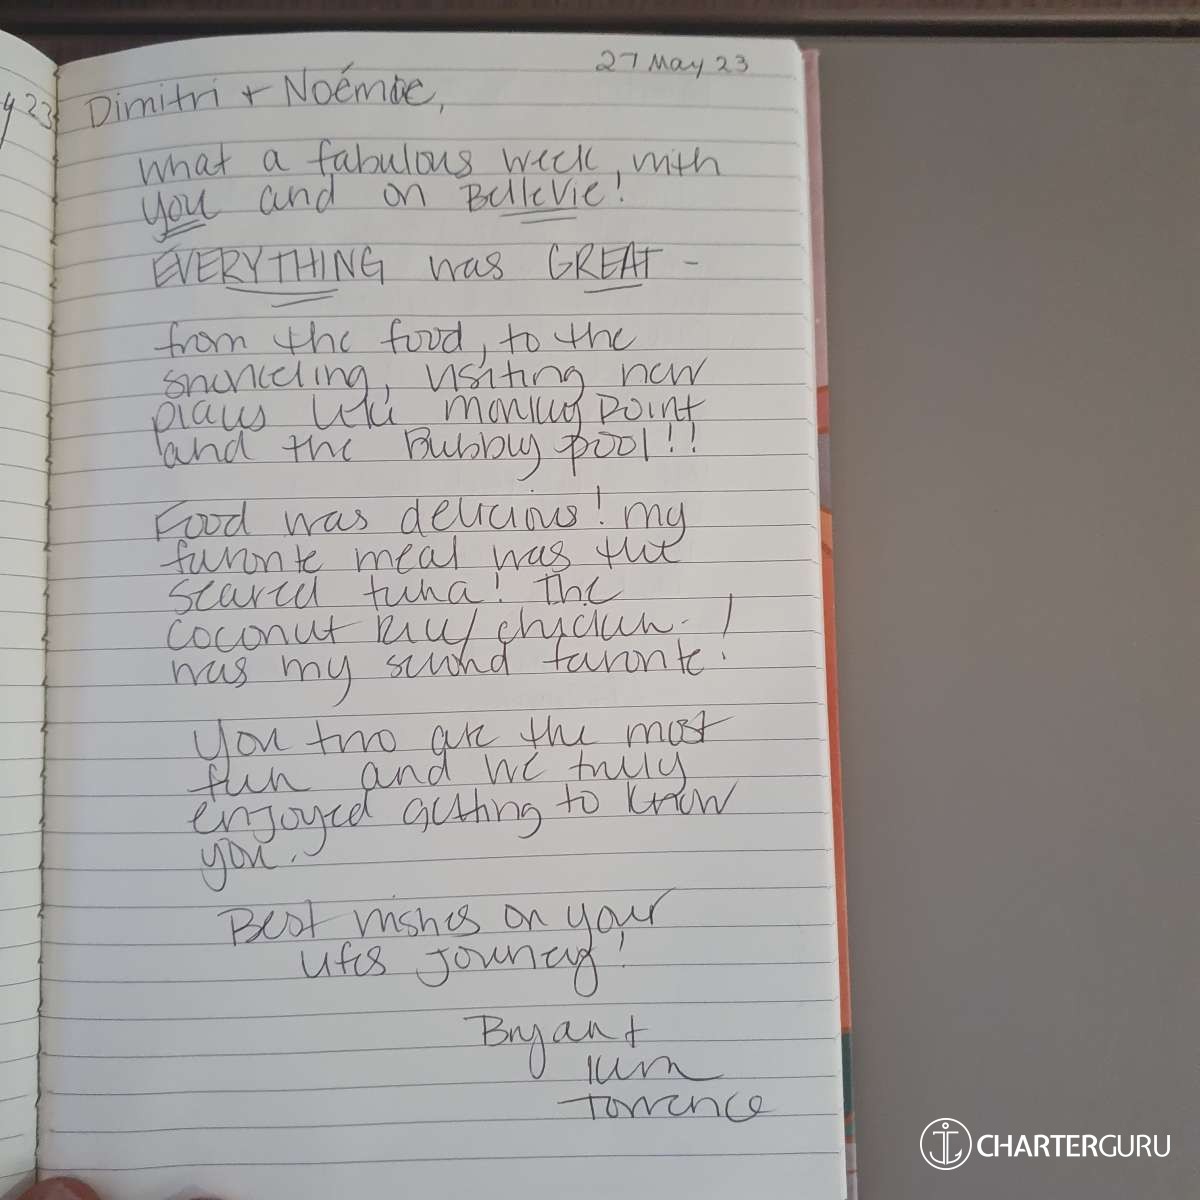 y 23
27 May 23
Dimitri + Noémie,
what a fabulous week, with
you and on BelleVie!
EVERYTHING was GREAT -
from the food, to the
snorkeling, visiting new
places like Monkey Point
and the Bubbly pool!!
Food was delicious! my
favorite meal was the
seared tuna! The
coconut rice/chicken
was my second favorite!
You two are the most
fun and we truly
enjoyed getting to know
you.
Best wishes on your
lifes journey!
Bryan +
Kim
Torrence
CHARTERGURU